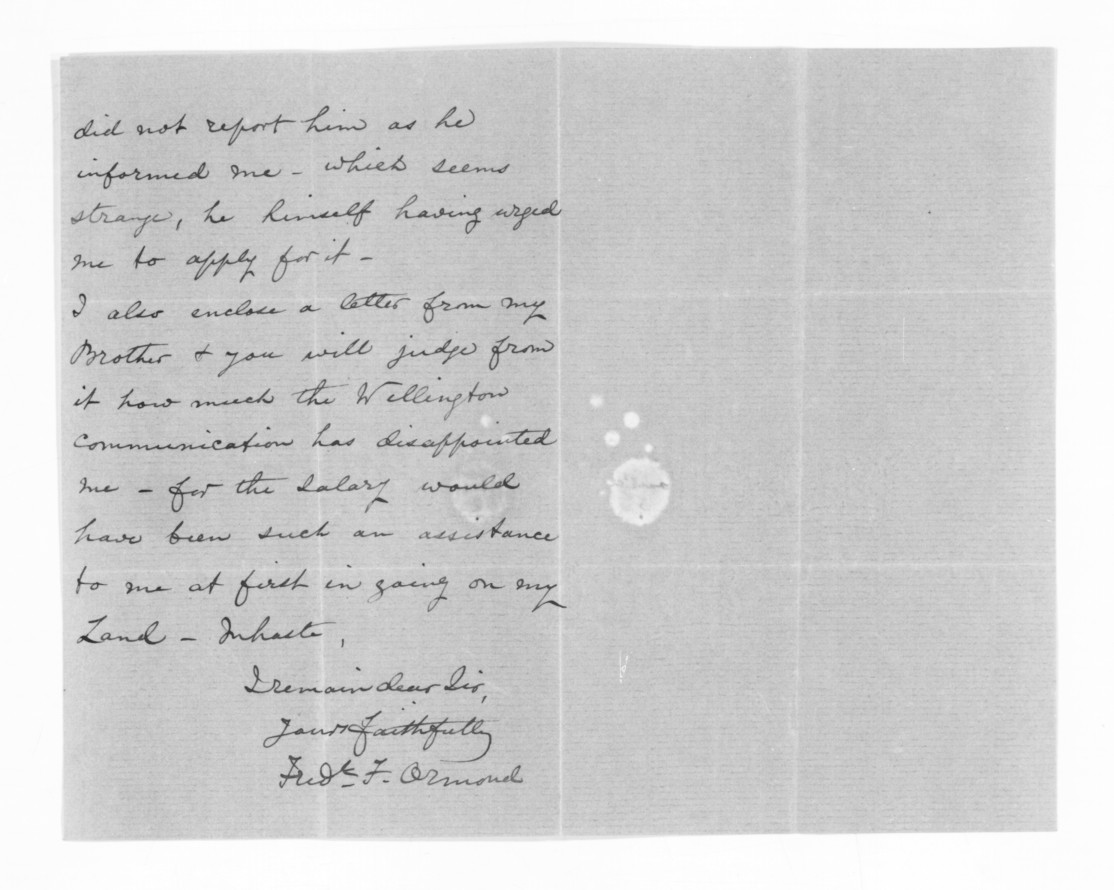 did not report him as he
informed me - which seems
strange, he himself having urged
me to apply for it -
I also enclose a letter from my
Brother & you will judge from
it how much the Wellington
communication has disappointed
me - for the Salary would
have been such an assistance
to me at first in going on my
Land - In haste,
I remain dear Sir,
Yours faithfully
Fredk. F. Ormond